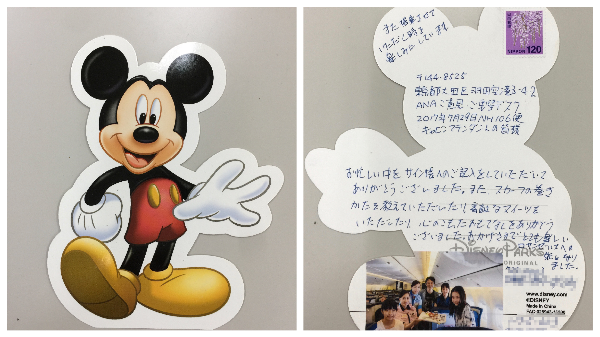 また搭乗させて
いただく時を
楽しみにしています
NIPPON 120
〒144-8525
東京都大田区羽田空港3-4-2
ANAご意見・ご要望デスク
2017年7月29日NH106便
キャビンアテンダントの皆様
お忙しい中をサイン悟人のご記入をしていただいて
ありがとうございました。また、スカーフの巻き
かたを教えていただいたり素敵なスイーツを
いただいたり、心のこもったおもてなしをありがとう
ございました。おかげさまでとても楽しい
旅と なり
ました。
DISNEY PARKS
ORIGINAL
www.disney.com
©DISNEY
Made in China
FAC-025943-15106